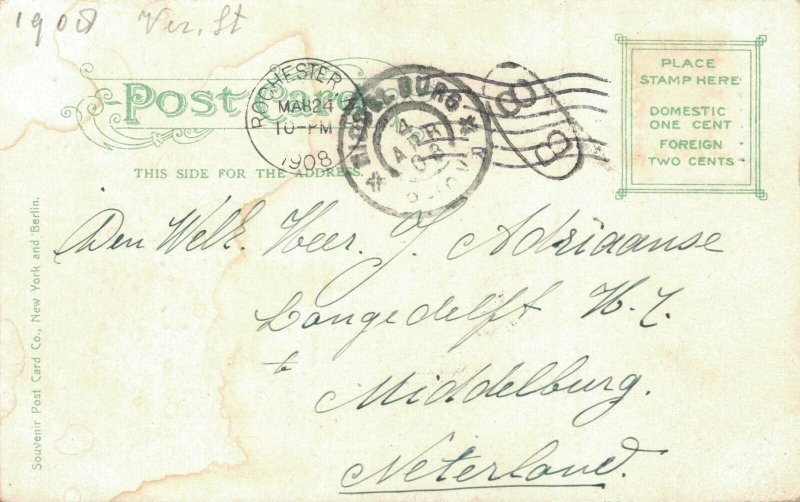 1908 Ver. St
Post Card
ROCHESTER
MAR 24
10-PM
1908
MIDDELBURG
4
APR
08
THIS SIDE FOR THE ADDRESS.
PLACE
STAMP HERE
DOMESTIC
ONE CENT
FOREIGN
TWO CENTS
Den Welk. Heer. J. Adriaanse
Langedelft
te
Middelburg.
Neterland.
Souvenir Post Card Co., New York and Berlin.